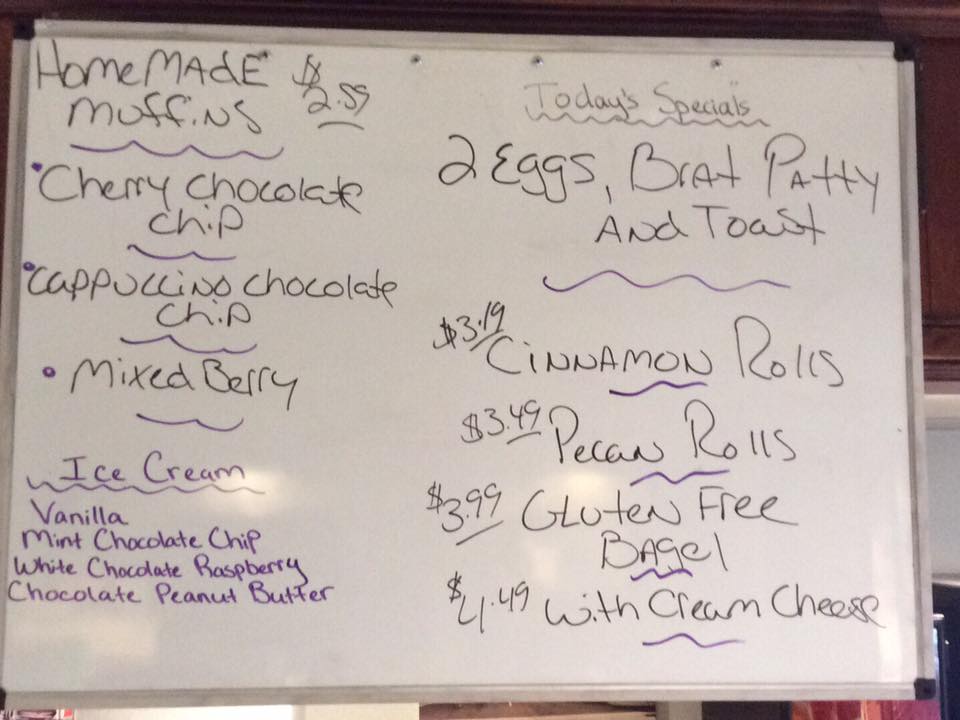 HomeMADE $2.59
Muffins
• Cherry Chocolate
Chip
• Cappuccino Chocolate
Chip
• Mixed Berry
Ice Cream
Vanilla
Mint Chocolate Chip
White Chocolate Raspberry
Chocolate Peanut Butter
Today's Specials
2 Eggs, Brat Patty
And Toast
$3.19
Cinnamon Rolls
$3.49 Pecan Rolls
$3.99 Gluten Free
Bagel
$4.49 with Cream Cheese